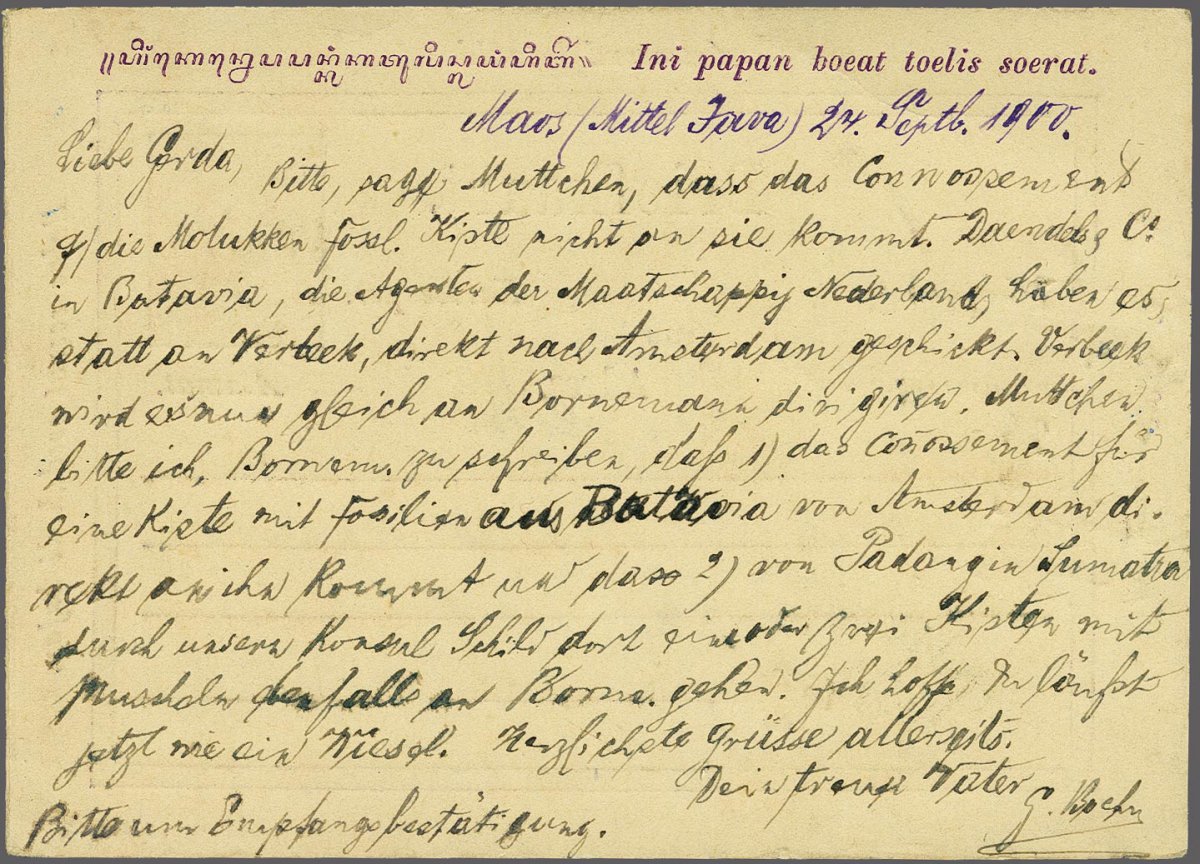 Ini papan boeat toelis soerat.
Maos (Mittel Java) 24. Septb. 1900.
Liebe Gerda,
Bitte, sage Muttchen, dass das Connossement
f/ die Molukken Fossl. Kiste nicht an sie kommt. Daendels & Co.
in Batavia, die Agenten der Maatschappij Nederland, haben es,
statt an Verbeek, direkt nach Amsterdam geschickt. Verbeek
wird es nun gleich an Bornemann dirigiren. Muttchen
bitte ich, Bornem. zu schreiben, daß 1) das Coñossement für
eine Kiste mit Fossilien aus Batavia von Amsterdam di-
rekt an ihn kommt und dass 2) von Padang in Sumatra
durch unsern Konsul Schild dort ein oder zwei Kisten mit
Muscheln ebenfalls an Borne. gehen. Ich hoffe, Du läufst
jetzt wie ein Wiesel. Herzlichste Grüsse allerseits.
Dein treuer Vater
G. Boehm
Bitte um Empfangsbestätigung.